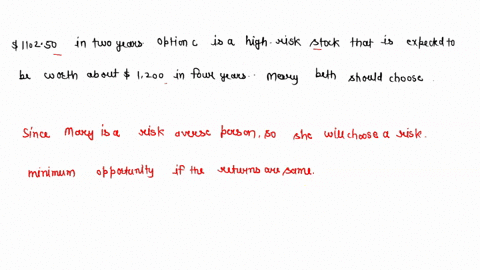 $1102.50 in two years option c is a high risk stock that is expected to
be worth about $1,200 in four years.. Mary beth should choose.
Since Mary is a risk averse person, so she will choose a risk.
minimum opportunity if the returns are, same.